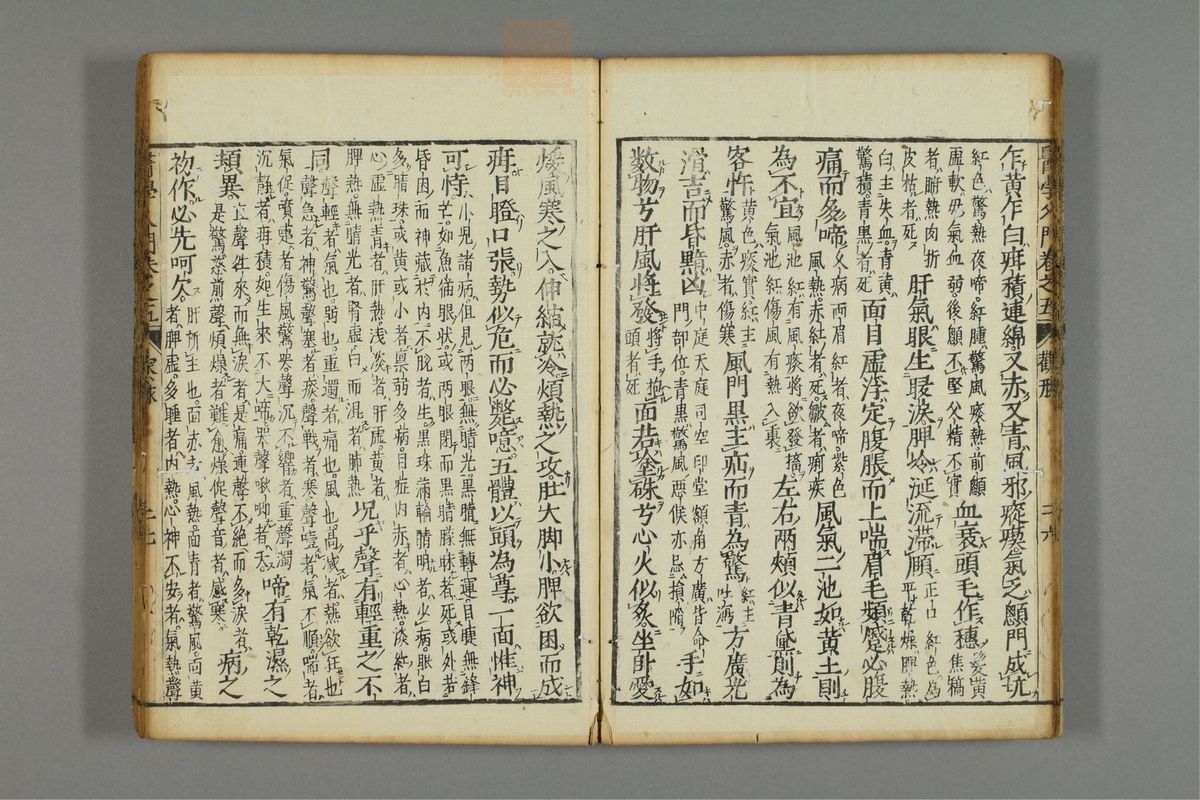 乍黃乍白疳積連綿又赤又青風邪瘈瘲氣乏顖門成坑
紅色驚熱夜啼。紅腫驚風痰熱前顖
虛軟毋氣血弱。後顖不堅父精不實
血衰頭毛作穗
髮黃
焦稿
者腑熱肉折
皮枯者死
肝氣眼生眵淚脾冷涎流滯頤
正口紅色爲
平乾燥脾熱
白主失血青黃
驚積青黑者死
面目虛浮定腹脹而上喘眉毛頻蹙必腹
痛而多啼
久病兩眉紅者夜啼紫色
風熱赤紅者死皺者痢疾
風氣二池如黃土則
爲不宜
風池紅有風痰將欲發搐
氣池紅傷風有熱入裏
左右兩頰似青黛則爲
客忤
黃色痰實紅主
驚風赤者傷寒
風門黑主疝而青爲驚
紅主
吐瀉
方廣光
滑吉而昏黯凶
中庭天庭司空印堂額角方廣皆命
門部位青黑驚風惡候亦忌損陷
手如
數物兮肝風將發
將手抱
頭者死
面若塗硃兮心火似多坐卧愛
醫學入門卷之五 觀形
燠風寒之入伸縮就冷煩熱之攻肚大脚小脾欲困而成
疳目瞪口張勢似危而必斃噫五體以頭爲尊一面惟神
可恃
小兒諸病但見兩眼無睛光黑睛無轉運目睫無鋒
芒如魚猫眼狀或兩眼閉而黑睛朦昧者死或外若
昏困而神藏於内不脫者生黑珠滿輪睛明者少病眼白
多睛珠或黃或小者禀弱多病目症内赤者心熱淡紅者
心虛熱青者肝熱淺淡者肝虛黃者
脾熱無睛光者腎虛白而混者肺熱
况乎聲有輕重之不
同
聲輕者氣也弱也重濁者痛也風也高喊者熱欲狂也
聲急者神驚聲塞者痰聲戰者寒聲噎者氣不順喘者
氣促噴嚏者傷風驚哭聲沉不響者重聲濁
沉靜者疳積如生來不大啼哭聲啾唧者夭
啼有乾濕之
頻異
直聲徃來而無淚者是痛連聲不絶而多淚者
是驚茶煎聲煩燥者難愈燥促聲音者感寒
病之
初作必先呵欠
肝所主也面赤者風熱面青者驚風面黃
者脾虛多睡者内熱心神不安者氣熱聲